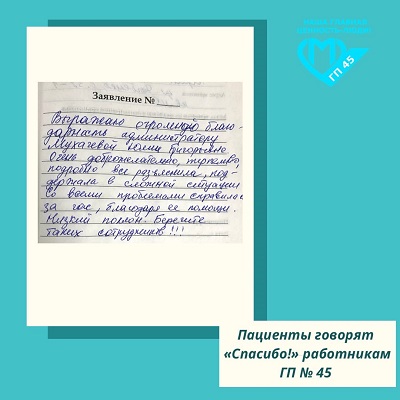 НАША ГЛАВНАЯ
ЦЕННОСТЬ-ЛЮДИ
ГП 45
Заявление №
Выражаю огромную благо-
дарность администратору
Мухачевой Юлии Григорьевне.
Очень доброжелательно, терпеливо,
подробно все разъяснила, под-
держала в сложной ситуации
Со всеми проблемами справилась
за час, благодаря ее помощи.
Низкий поклон. Берегите
таких сотрудников!!!
Пациенты говорят
«Спасибо!» работникам
ГП № 45